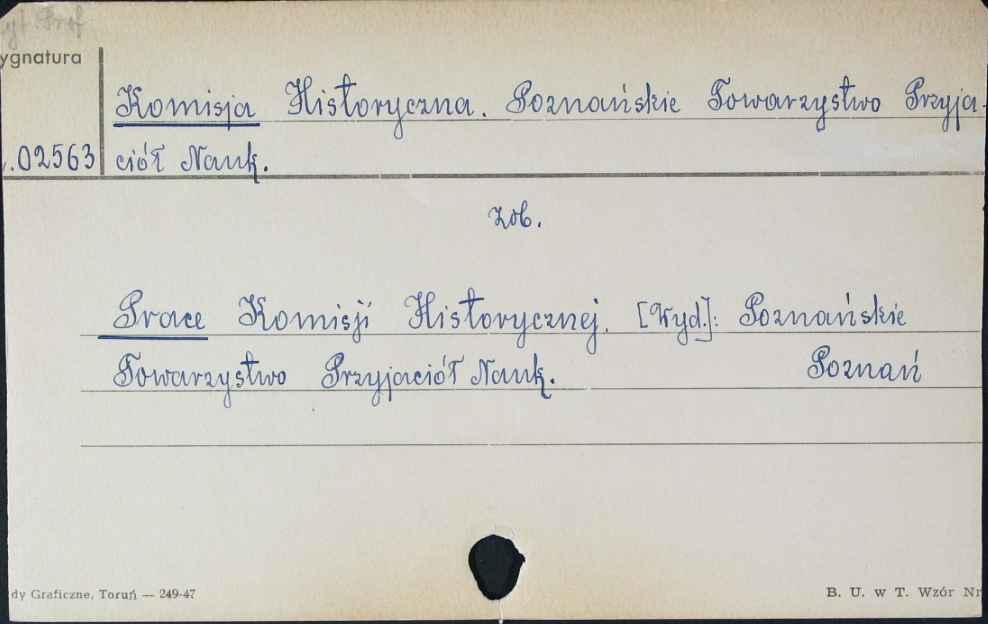 ygnatura
Komisja Historyczna. Poznańskie Towarzystwo Przyja-
.02563 ciół Nauk.
zob.
Prace Komisji Historycznej. [Wyd.]: Poznańskie
Towarzystwo Przyjaciół Nauk. Poznań
dy Graficzne, Toruń — 249-47
B. U. w T. Wzór Nr